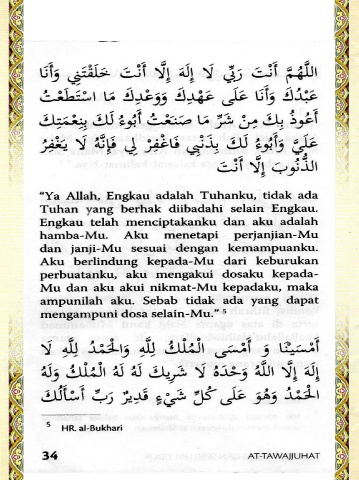 اللَّهُمَّ أَنْتَ رَبِّي لَا إِلَهَ إِلَّا أَنْتَ خَلَقْتَنِي وَأَنَا
عَبْدُكَ وَأَنَا عَلَى عَهْدِكَ وَوَعْدِكَ مَا اسْتَطَعْتُ
أَعُوذُ بِكَ مِنْ شَرِّ مَا صَنَعْتُ أَبُوءُ لَكَ بِنِعْمَتِكَ
عَلَيَّ وَأَبُوءُ لَكَ بِذَنْبِي فَاغْفِرْ لِي فَإِنَّهُ لَا يَغْفِرُ
الذُّنُوبَ إِلَّا أَنْتَ
“Ya Allah, Engkau adalah Tuhanku, tidak ada
Tuhan yang berhak diibadahi selain Engkau.
Engkau telah menciptakanku dan aku adalah
hamba-Mu. Aku menetapi perjanjian-Mu
dan janji-Mu sesuai dengan kemampuanku.
Aku berlindung kepada-Mu dari keburukan
perbuatanku, aku mengakui dosaku kepada-
Mu dan aku akui nikmat-Mu kepadaku, maka
ampunilah aku. Sebab tidak ada yang dapat
mengampuni dosa selain-Mu.” 5
أَمْسَيْنَا وَ أَمْسَى الْمُلْكُ لِلَّهِ وَالْحَمْدُ لِلَّهِ لَا
إِلَهَ إِلَّا اللَّهُ وَحْدَهُ لَا شَرِيكَ لَهُ لَهُ الْمُلْكُ وَلَهُ
الْحَمْدُ وَهُوَ عَلَى كُلِّ شَيْءٍ قَدِيرٌ رَبِّ أَسْأَلُكَ
5 HR. al-Bukhari
34 AT-TAWAJJUHAT